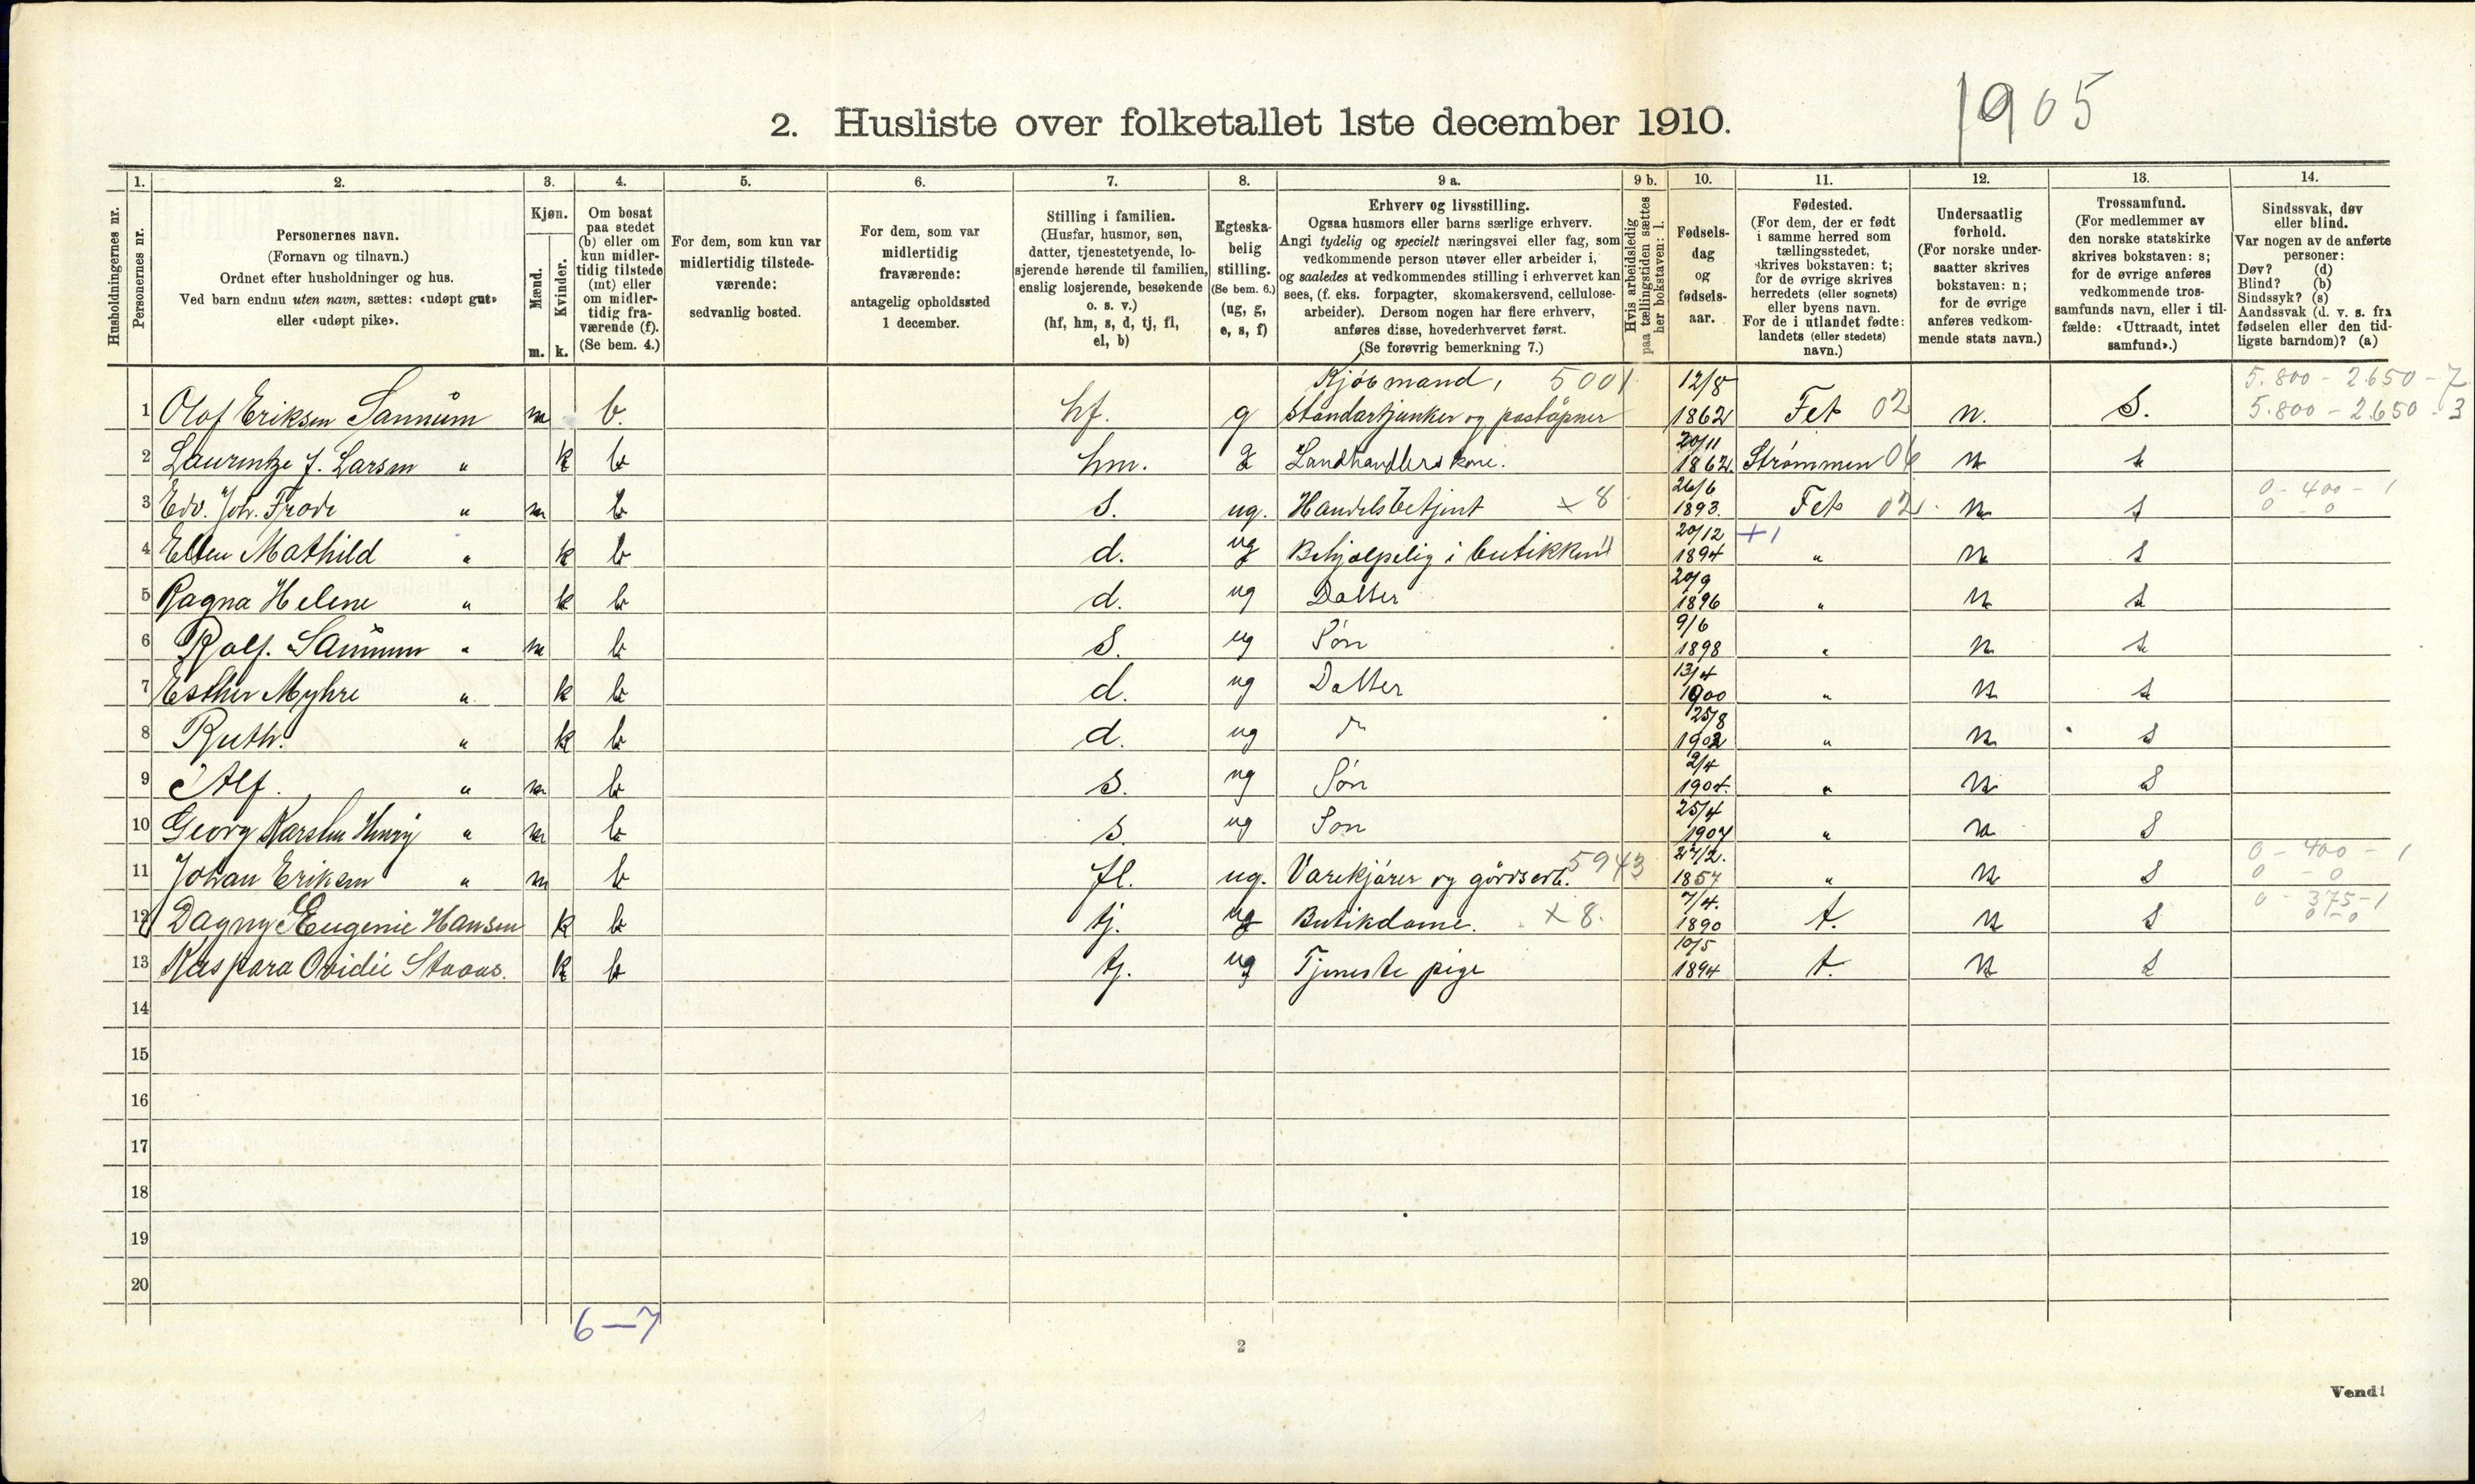 1905
2. Husliste over folketallet 1ste december 1910.
Husholdningernes nr.
1.
Personernes nr.
2.
Personernes navn.
(Fornavn og tilnavn.)
Ordnet efter husholdninger og hus.
Ved barn endnu uten navn, sættes: «udøpt gut»
eller «udøpt pike».
3.
Kjøn.
Mænd.
Kvinder.
m. k.
4.
Om bosat
paa stedet
(b) eller om
kun midler-
tidig tilstede
(mt) eller
om midler-
tidig fra-
værende (f).
(Se bem. 4.)
5.
For dem, som kun var
midlertidig tilstede-
værende:
sedvanlig bosted.
6.
For dem, som var
midlertidig
fraværende:
antagelig opholdssted
1 december.
7.
Stilling i familien.
(Husfar, husmor, søn,
datter, tjenestetyende, lo-
sjerende hørende til familien,
enslig losjerende, besøkende
o. s. v.)
(hf, hm, s, d, tj, fl,
el, b)
8.
Egteska-
belig
stilling.
(Se bem. 6.)
(ug, g,
e, s, f)
9 a.
Erhverv og livsstilling.
Ogsaa husmors eller barns særlige erhverv.
Angi tydelig og specielt næringsvei eller fag, som
vedkommende person utøver eller arbeider i,
og saaledes at vedkommendes stilling i erhvervet kan
sees, (f. eks. forpagter, skomakersvend, cellulose-
arbeider). Dersom nogen har flere erhverv,
anføres disse, hovederhvervet først.
(Se forøvrig bemerkning 7.)
9 b.
Hvis arbeidsledig
paa tællingstiden sættes
her bokstaven: l.
10.
Fødsels-
dag
og
fødsels-
aar.
11.
Fødested.
(For dem, der er født
i samme herred som
tællingsstedet,
skrives bokstaven: t;
for de øvrige skrives
herredets (eller sognets)
eller byens navn.
For de i utlandet fødte:
landets (eller stedets)
navn.)
12.
Undersaatlig
forhold.
(For norske under-
saatter skrives
bokstaven: n;
for de øvrige
anføres vedkom-
mende stats navn.)
13.
Trossamfund.
(For medlemmer av
den norske statskirke
skrives bokstaven: s;
for de øvrige anføres
vedkommende tros-
samfunds navn, eller i til-
fælde: «Uttraadt, intet
samfund».)
14.
Sindssvak, døv
eller blind.
Var nogen av de anførte
personer:
Døv? (d)
Blind? (b)
Sindssyk? (s)
Aandssvak (d. v. s. fra
fødselen eller den tid-
ligste barndom)? (a)
Kjøbmand, 5001 12/8 5.800 - 2.650 - 7
1 Olof Eriksen Sannum m b. hf. g og poståpner 1862 Fet 02 n. S. 5.800 - 2.650 - 3
20/11
2 J. Larsen " k b hm. g Landhandlers kone. 1862. Strømmen 06 n s
26/6 0 - 400 - 1
3 Edv. Joh. Frode " m b s. ug. Handelsbetjent x 8 1893. Fet 02 n s 0 - 0
20/12 +1
4 Ellen Mathild " k b d. ug Behjælpelig i butikken 1894 " n s
20/9
5 Ragna Helene " k b d. ug Datter 1896 " n s
9/6
6 Rolf. Sannum " m b s. ug Søn 1898 " n s
13/4
7 Esther Myhre " k b d. ug Datter 1900 " n s
25/8
8 Ruth. " k b d. ug 1902 " n s
2/4
9 Alf. " m b s. ug Søn 1904. " n s
25/4
10 Georg Karsten Henry " m b s. ug Søn 1907 " n s
27/2. 0 - 400 - 1
11 Johan Eriksen " m b fl. ug. Varekjører og gårdsarb. 5943 1857 " n s 0 - 0
7/4. 0 - 375 - 1
12 Dagny Eugenie Hansen k b tj. ug Butikdame. x 8. 1890 t. n s 0 - 0
10/5
13 Kaspara Ovidie k b tj. ug Tjeneste pige 1894 t. n s
14
15
16
17
18
19
20
6 — 7
2
Vend!